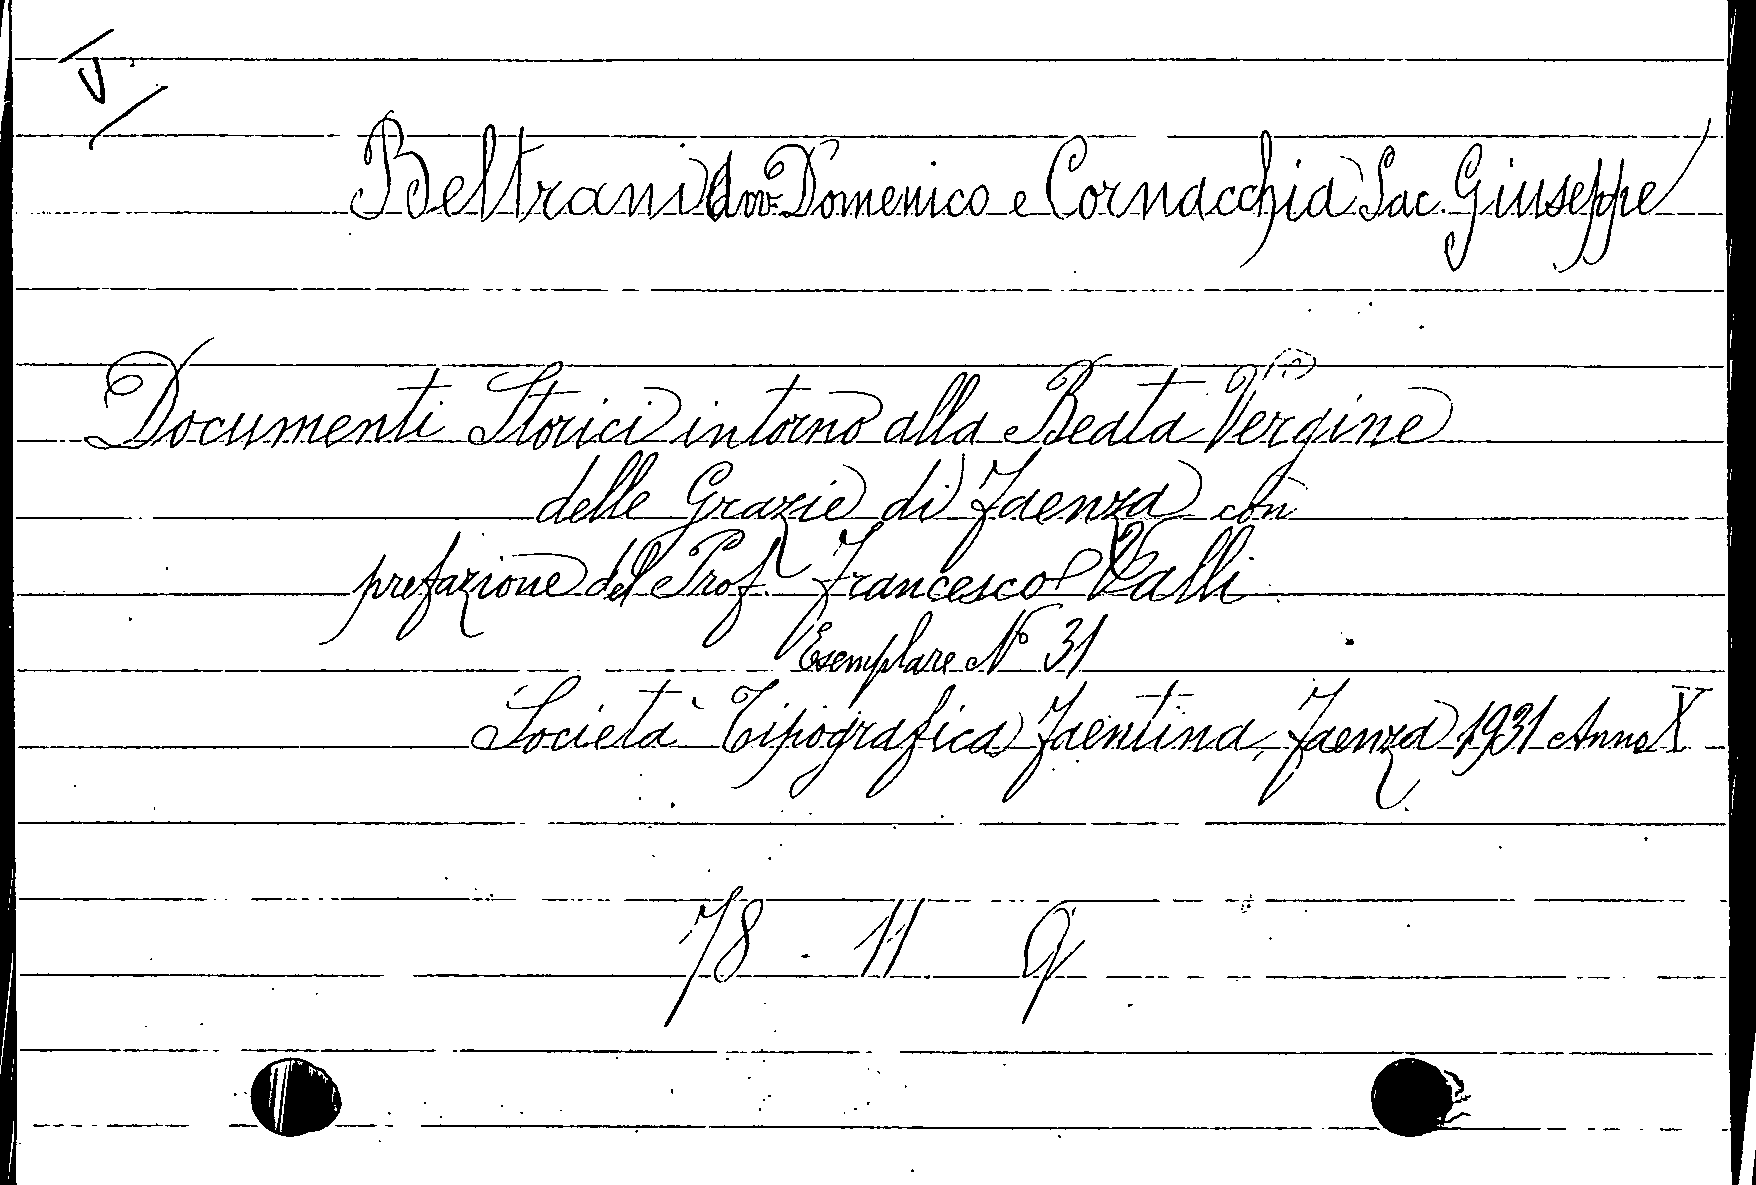 V.
Beltrani Avv. Domenico e Cornacchia Sac. Giuseppe
Documenti Storici intorno alla Beata Vergine
delle Grazie di Faenza con
prefazione del Prof. Francesco Valli
Esemplare N° 31
Società Tipografica Faentina, Faenza 1931 Anno X
78 . 11 G